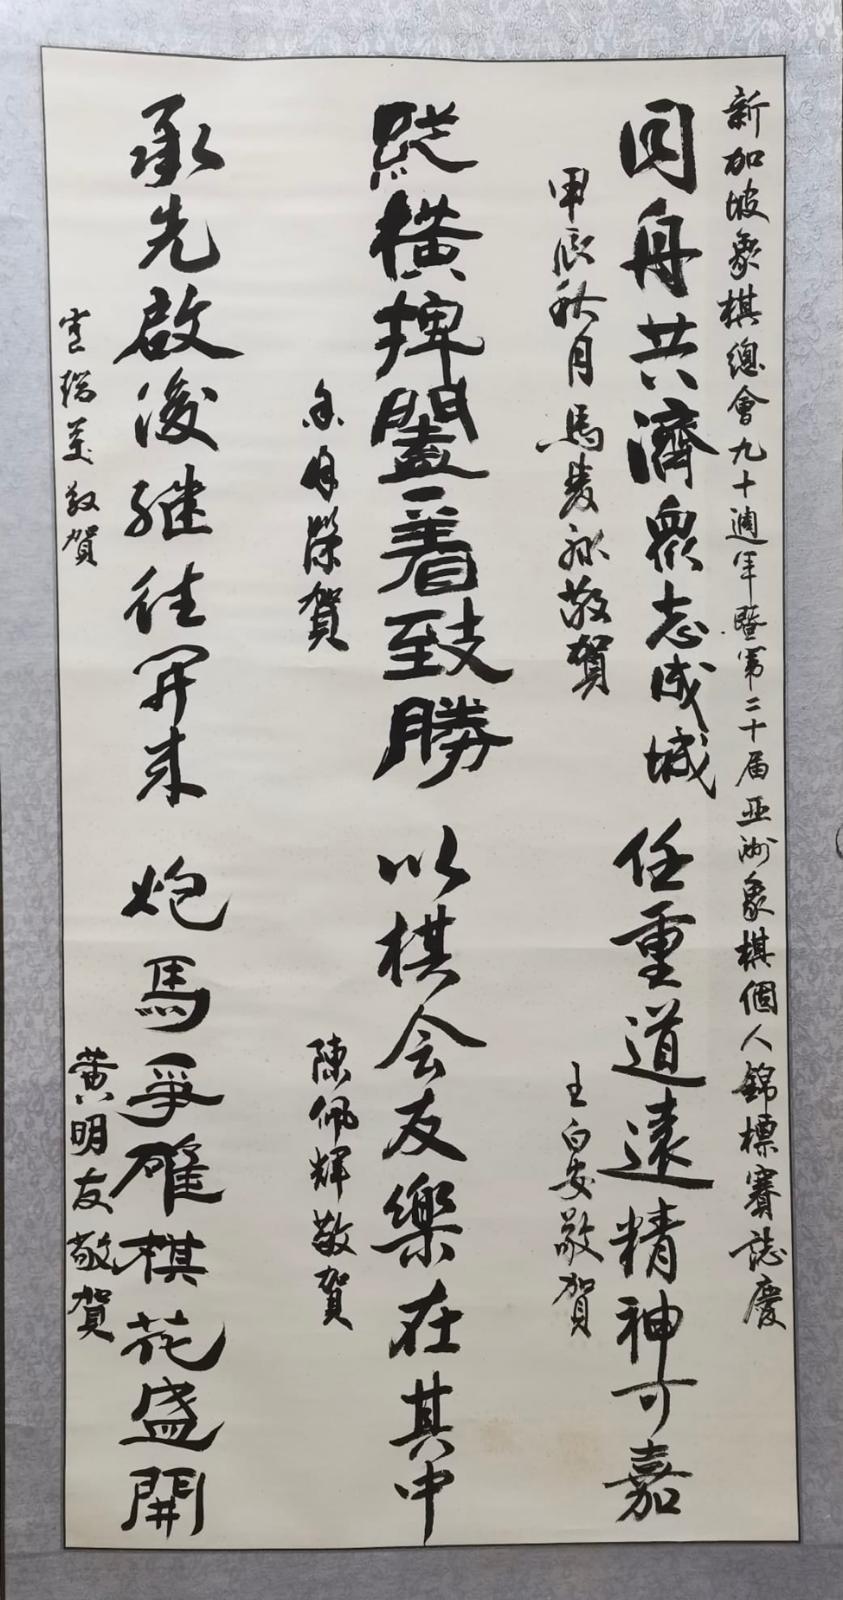 新加坡象棋總會九十週年暨第二十届亚洲象棋個人錦標賽誌慶
同舟共濟眾志成城
任重道遠精神可嘉
甲辰秋月馬 敬賀
王白安敬賀
縱橫捭闔一著致勝
以棋会友樂在其中
賀
陳佩輝敬賀
承先啟後继往開来
炮馬争雄棋花盛開
敬賀
黄明友敬賀